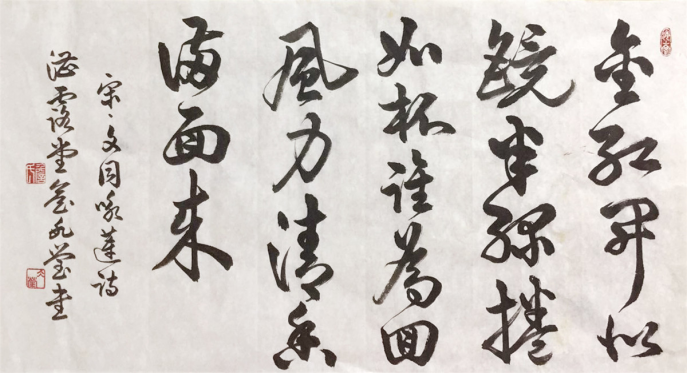 全紅開似
鏡半綠捲
如杯誰為回
風力清香
滿面来
宋、文同咏蓮詩
湛露堂書